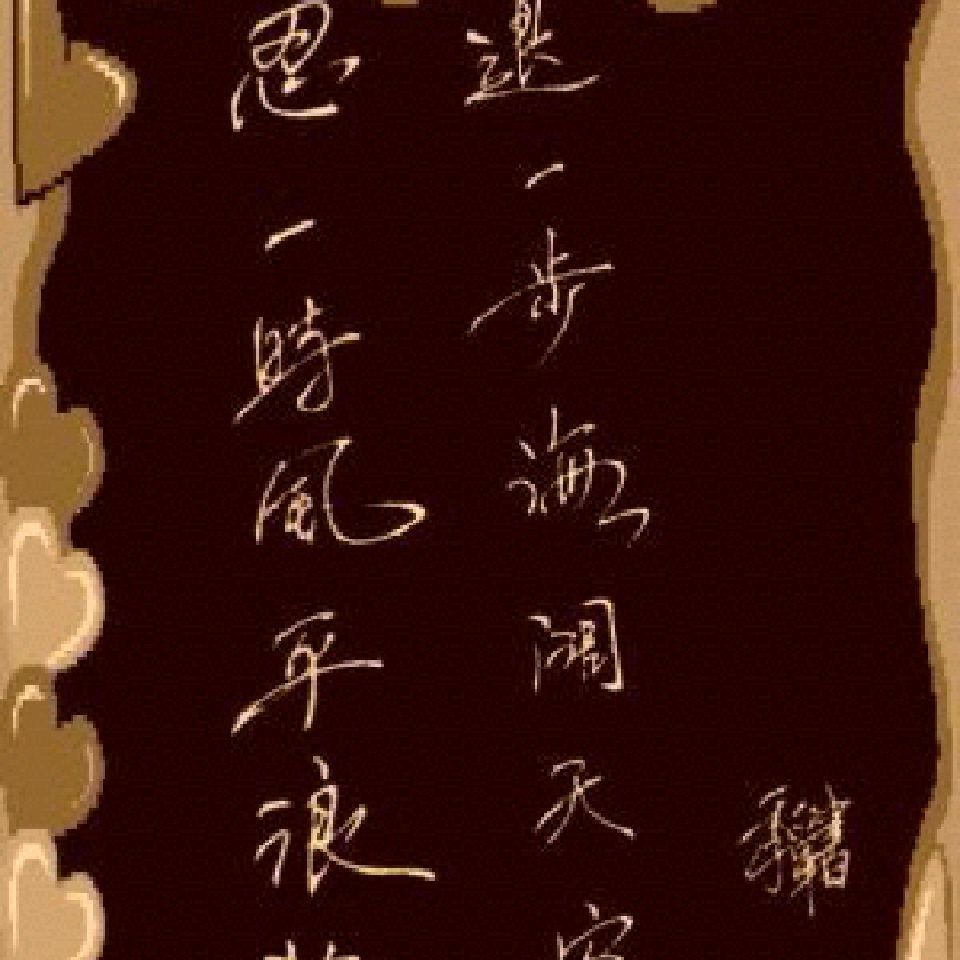 忍一時風平浪
退一步海闊天空